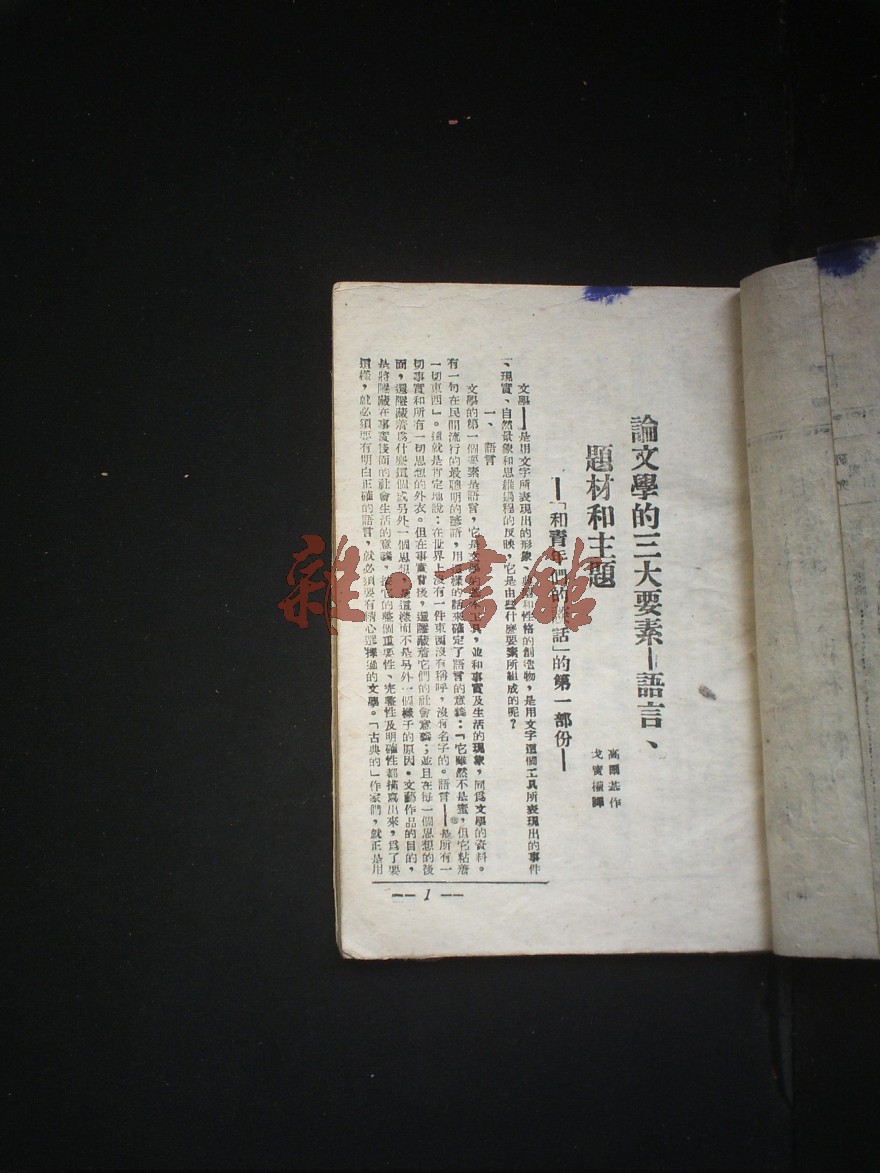 論文學的三大要素—語言、
題材和主題
高爾基作
戈寶權譯
—「和青年們的談話」的第一部份—
文學——是用文字所表現出的形象、典型和性格的創造物，是用文字這個工具所表現出的事件
、現實、自然景象和思維過程的反映，它是由些什麼要素所組成的呢？
一、語言
文學的第一個要素是語言，它是文學的基本工具，並和事實及生活的現象，同爲文學的資料。
有一句在民間流行的最聰明的諺語，用這樣的話來確定了語言的意義：「它雖然不是蜜，但它粘着
一切東西」。這就是肯定地說：在世界上沒有一件東西沒有稱呼，沒有名字的。語言——是所有一
切事實和所有一切思想的外衣。但在事實背後，還隱藏着它們的社會意義；並且在每一個思想的後
面，還隱藏着爲什麼這個或另外一個思想，是這樣而不是另外一個樣子的原因。文藝作品的目的，
是將隱藏在事實後面的社會生活的意義，按它的整個重要性、完整性及明確性都描寫出來，爲了要
這樣，就必須要有明白正確的語言，就必須要有精心選擇過的文學。「古典的」作家們，就正是用
— 1 —
雜·書館